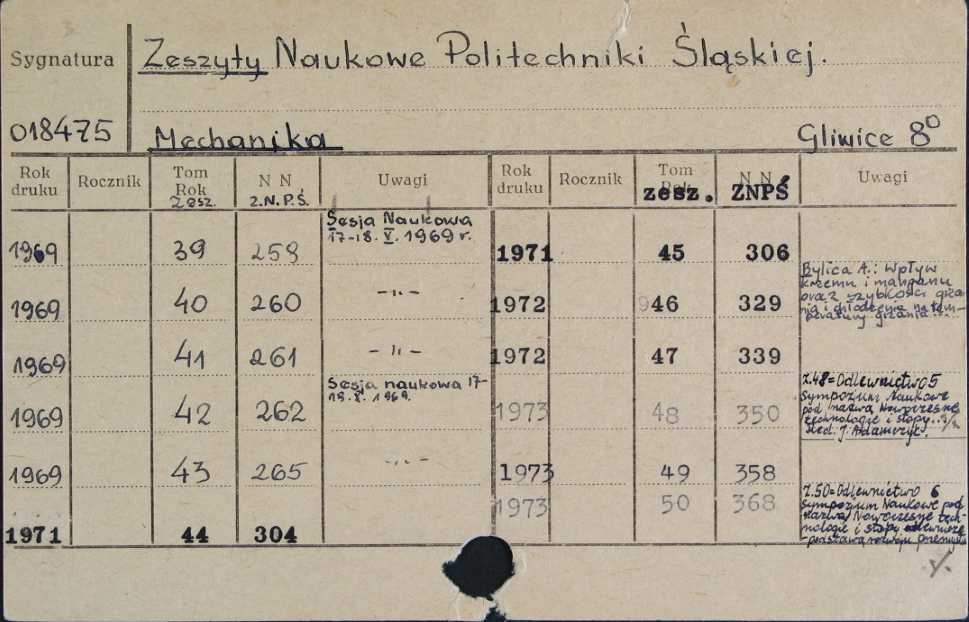 Sygnatura Zeszyty Naukowe Politechniki Śląskiej.
018475 Mechanika Gliwice 8⁰
Rok druku Rocznik Tom Rok zesz. N N Z.N.P.Ś. Uwagi Rok druku Rocznik Tom Rok zesz. N N ZNPŚ Uwagi
Sesja Naukowa
17-18. V. 1969 r.
1969 39 259
1971 45 306
1969 40 260 -"-
1972 46 329
Bylica A.: Wpływ
krzemu i manganu
oraz szybkości grza-
nia i chłodzenia na tem-
peratury grzania...
1969 41 261 -"-
1972 47 339
1969 42 262
Sesja naukowa 17-
1969.
1973 48 350
Z.48=Odlewnictwo 5
Sympozjum Naukowe
pod nazwą Nowoczesne
technologie i stopy..
Red. J. Adamczyk.
1969 43 265 -"-
1973 49 358
1973 50 368
Z.50=Odlewnictwo 6
Sympozjum Naukowe pod
nazwą Nowoczesne tech-
nologie i stopy odlewnicze
-podstawą rozwoju przemysłu
1971 44 304